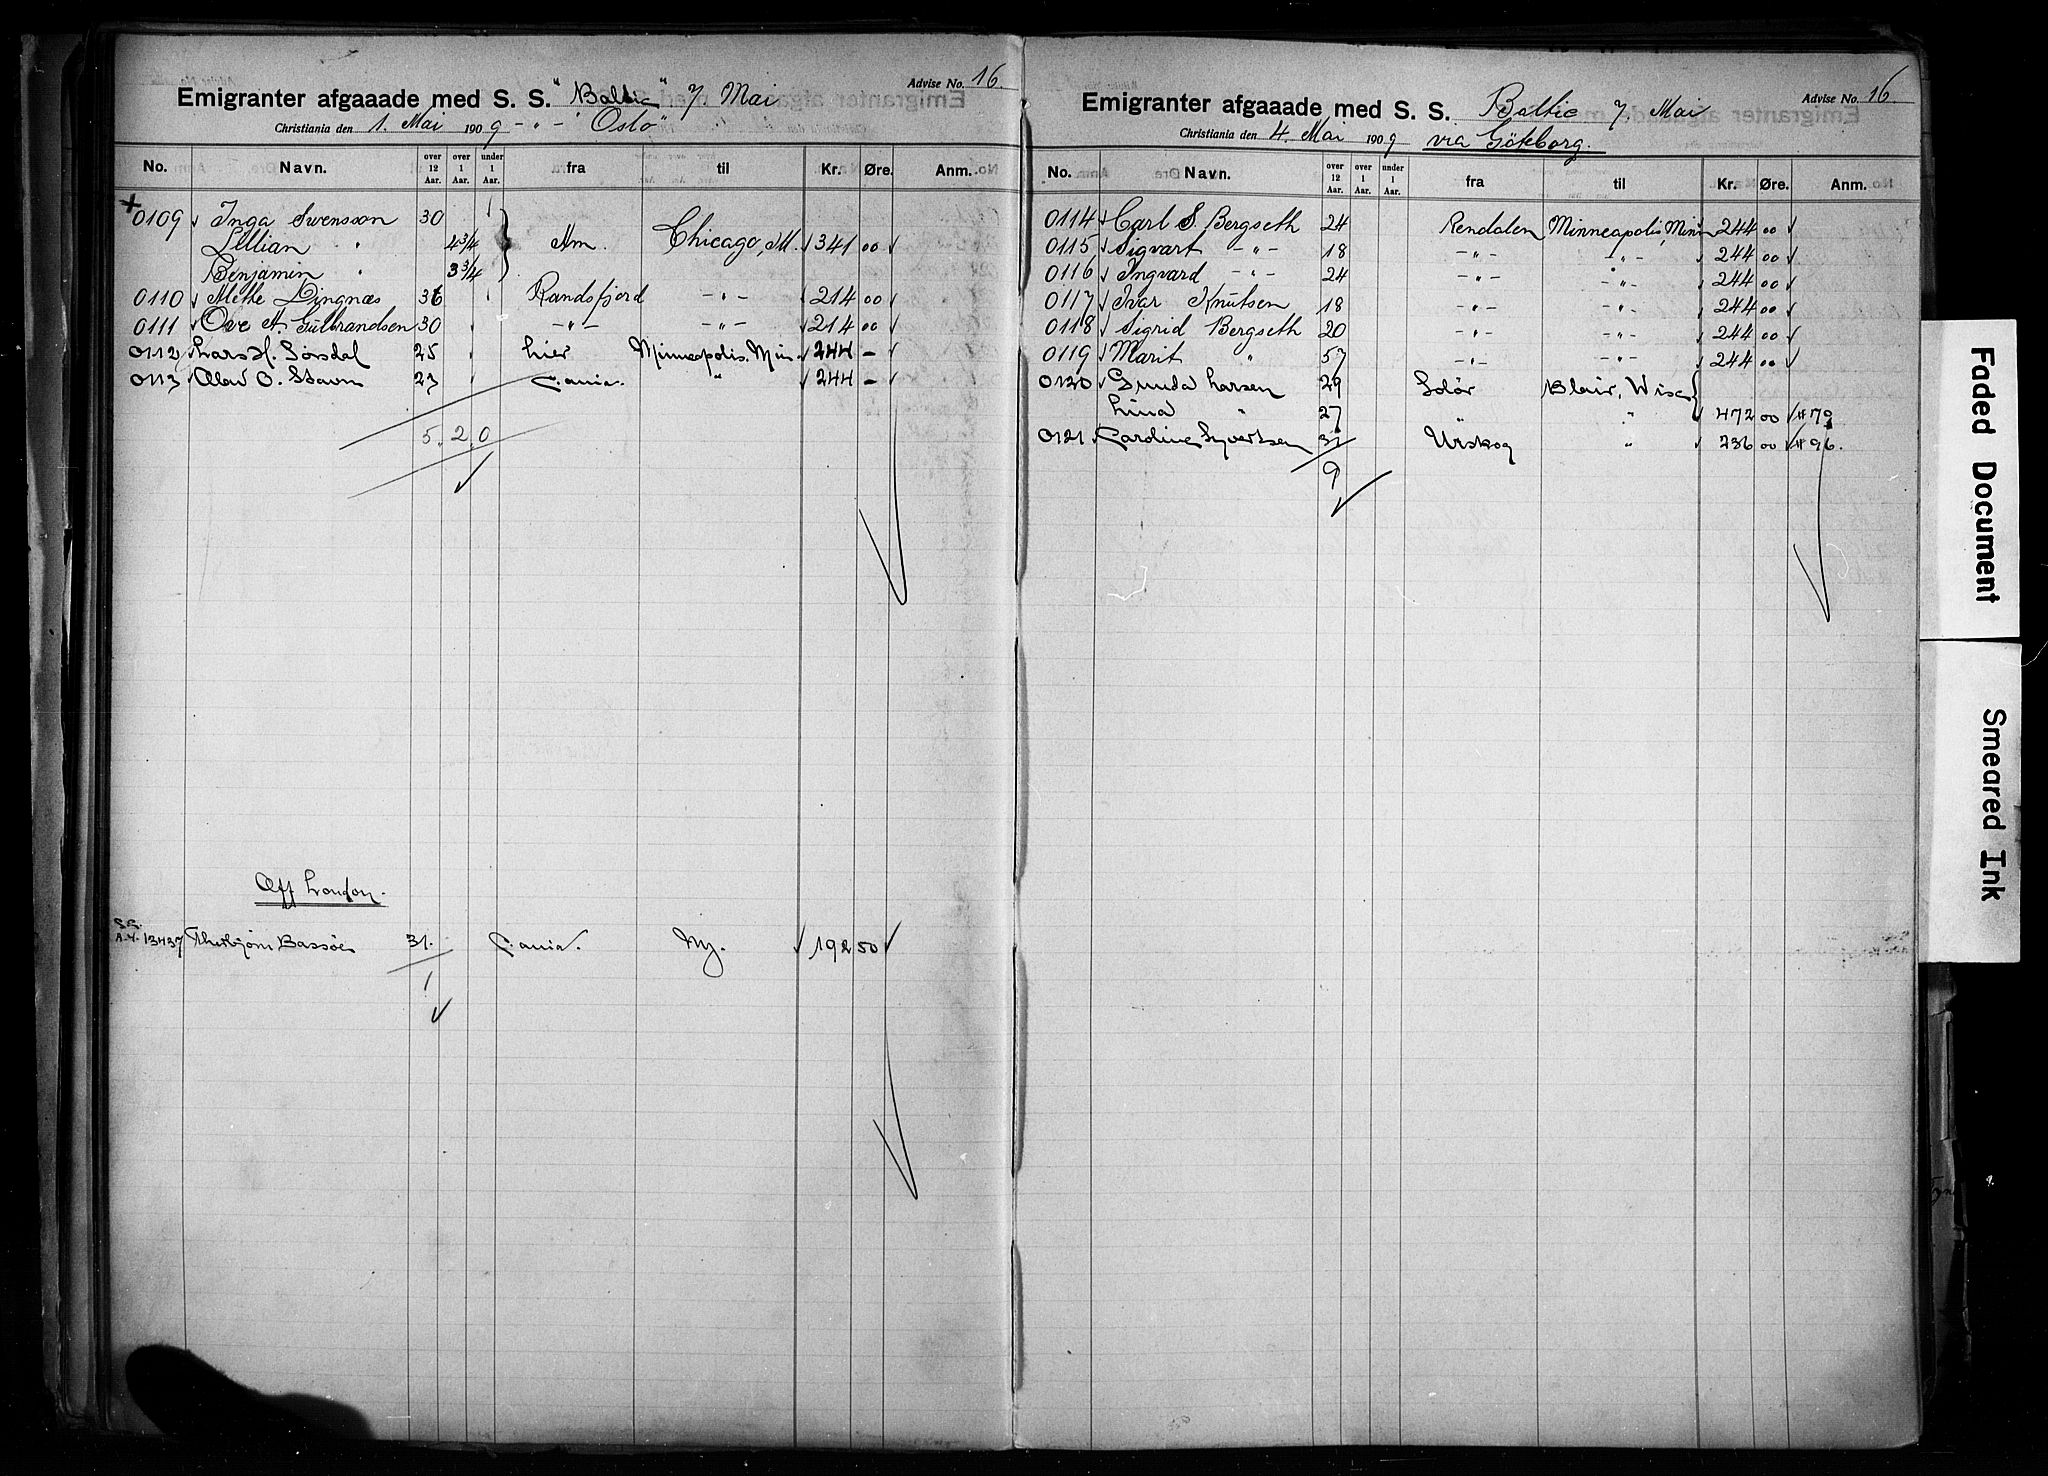 Advise No. 16.
Emigranter afgaaade med S. S. "Baltic" 7 Mai
Christiania den 1. Mai 1909 - " - "Oslo"
No. Navn. over 12 Aar. over 1 Aar. under 1 Aar. fra til Kr. Øre. Anm.
0109 Inga Swensson 30
Lillian " 4 3/4 Am. Chicago, Ill. 341 00
Benjamin " 3 3/4
0110 Methe Lingnæs 36 Randsfjord - " - 214 00
0111 Ove A. Gulbrandsen 30 - " - - " - 214 00
0112 Lars H. Sørdal 25 Lier Minneapolis. Min 244 -
0113 Olav O. Stavn 27 C.ania. " 244 -
5. 2. 0
Off London.
S.S.
A.4. 13437 Thorbjørn Bassøe 31. C.ania. Ny. 192 50
1
Advise No. 16.
Emigranter afgaaade med S. S. Baltic 7. Mai
Christiania den 4. Mai 1909 via Göteborg.
No. Navn. over 12 Aar. over 1 Aar. under 1 Aar. fra til Kr. Øre. Anm.
0114 Carl S. Bergseth 24 Rendalen Minneapolis, Minn 244 00
0115 Sigvart - " - 18 - " - - " - 244 00
0116 Ingvard - " - 24 - " - - " - 244 00
0117 Ivar Knutsen 18 - " - - " - 244 00
0118 Sigrid Bergseth 20 - " - - " - 244 00
0119 Marit " 57 - " - - " - 244 00
0120 Gunda Larsen 29 Solør Blair, Wisc
Lina " 27 " 472 00 # 79
0121 Caroline Syvertsen 31 Urskog " 236 00 # 96.
9
Faded Document
Smeared Ink